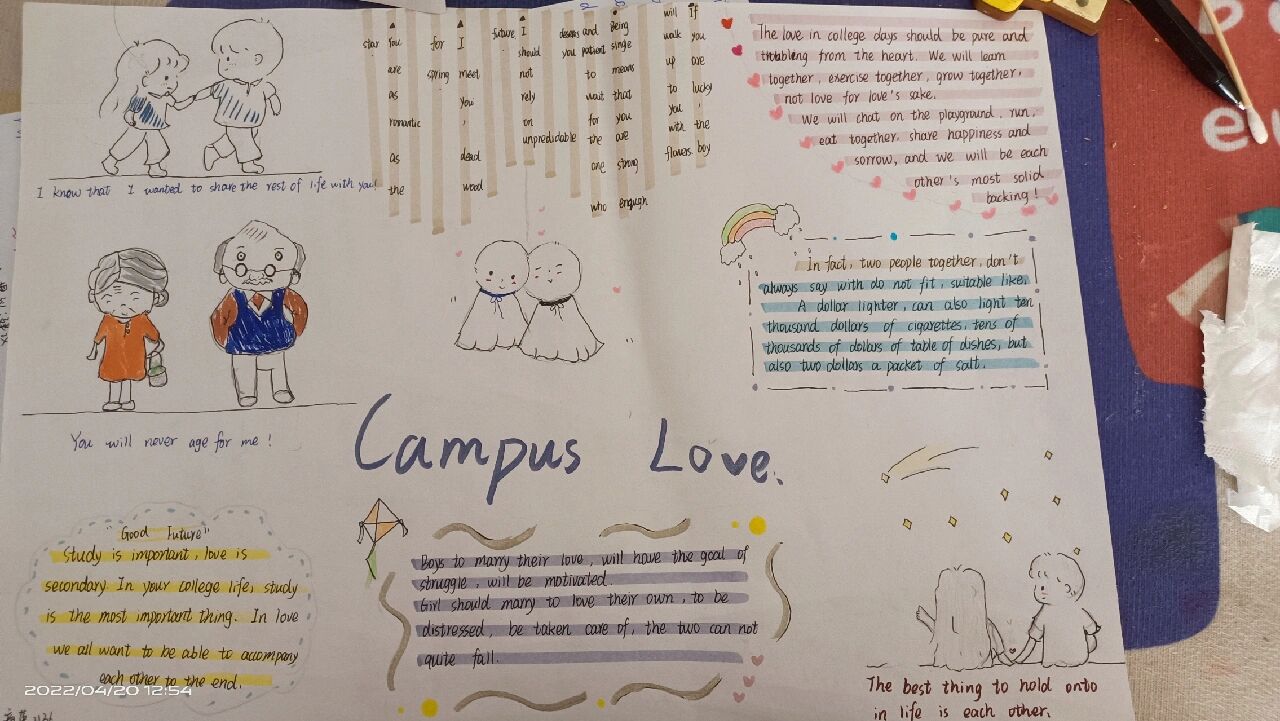 I know that I wanted to share the rest of life with you!
If you are lucky, the boy
will walk up to you with the flowers.
Being single means that you are strong enough
and patient to wait for the one who
deserves you
I should not rely on unpredictable
future
I meet you, dead wood
for spring
You are as romantic as the
star
The love in college days should be pure and
trembling from the heart. We will learn
together, exercise together, grow together,
not love for love's sake.
We will chat on the playground, run,
eat together, share happiness and
sorrow, and we will be each
other's most solid
backing!
In fact, two people together, don't
always say with do not fit, suitable like.
A dollar lighter, can also light ten
thousand dollars of cigarettes, tens of
thousands of dollars of table of dishes, but
also two dollars a packet of salt.
You will never age for me!
Campus Love.
"Good Future"
Study is important, love is
secondary In your college life, study
is the most important thing. In love
we all want to be able to accompany
each other to the end.
Boys to marry their love, will have the goal of
struggle, will be motivated.
Girl should marry to love their own, to be
distressed, be taken care of, the two can not
quite fall.
The best thing to hold onto
in life is each other.
2022/04/20 12:54